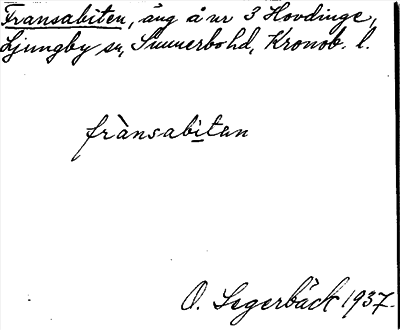 Fransabiten, äng å nr 3 Hovdinge,
Ljungby sn, Sunnerbo hd, Kronob. l.
frànsabitan
O. Segerbäck 1937.